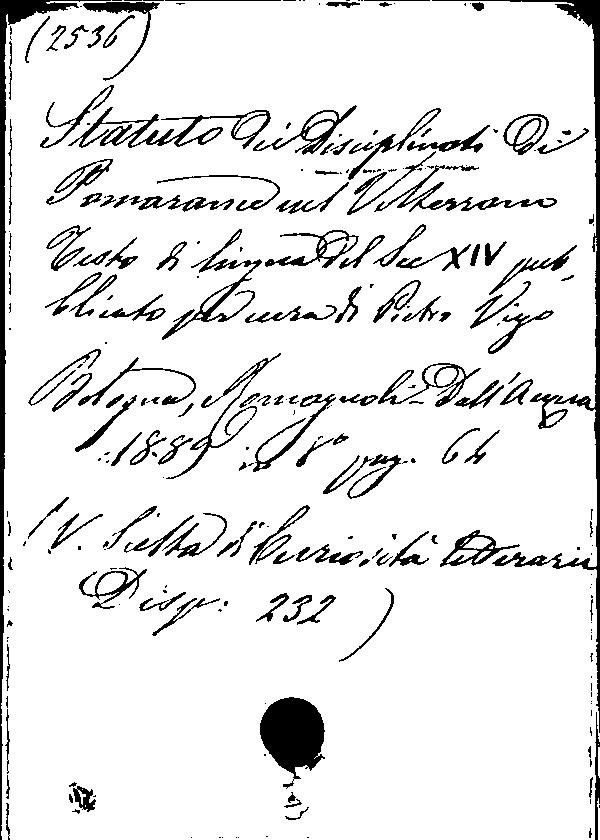 (2536)
Statuto dei Disciplinati di
Pomarance nel Volterrano
Testo di lingua del Sec XIV pub-
blicato per cura di Pietro Vigo
Bologna, Romagnoli-Dall'Acqua
1889 in 8° pag. 64
(V. Scelta di Curiosità letterarie
Disp: 232)